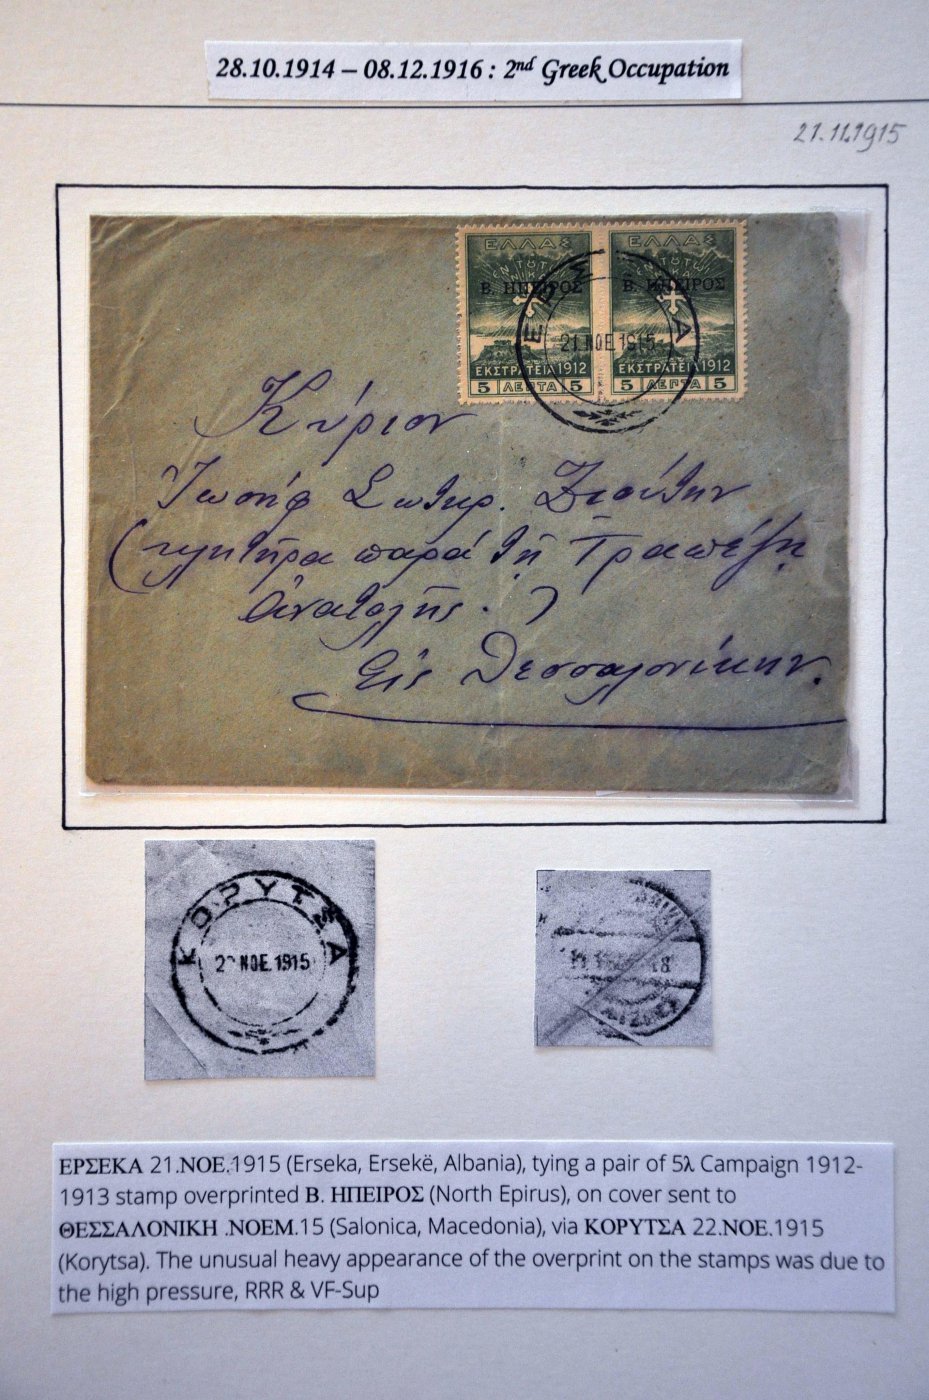 28.10.1914 – 08.12.1916 : 2nd Greek Occupation
21.11.1915
ΕΛΛΑΣ ΕΛΛΑΣ
ΕΝ ΤΟΥΤΩ ΝΙΚΑ
Β. ΗΠΕΙΡΟΣ Β. ΗΠΕΙΡΟΣ
21 ΝΟΕ 1915
ΕΚΣΤΡΑΤΕΙΑ 1912 ΕΚΣΤΡΑΤΕΙΑ 1912
5 ΛΕΠΤΑ 5 5 ΛΕΠΤΑ 5
Κύριον
Ἰωσήφ Σωτηρ.
παρά τῇ Τραπέζῃ
Ἀνατολῆς.)
Εἰς Θεσσαλονίκην.
ΚΟΡΥΤΣΑ
ΝΟΕ.1915
ΕΡΣΕΚΑ 21.ΝΟΕ.1915 (Erseka, Ersekë, Albania), tying a pair of 5λ Campaign 1912-
1913 stamp overprinted Β. ΗΠΕΙΡΟΣ (North Epirus), on cover sent to
ΘΕΣΣΑΛΟΝΙΚΗ .ΝΟΕΜ.15 (Salonica, Macedonia), via ΚΟΡΥΤΣΑ 22.ΝΟΕ.1915
(Korytsa). The unusual heavy appearance of the overprint on the stamps was due to
the high pressure, RRR & VF-Sup